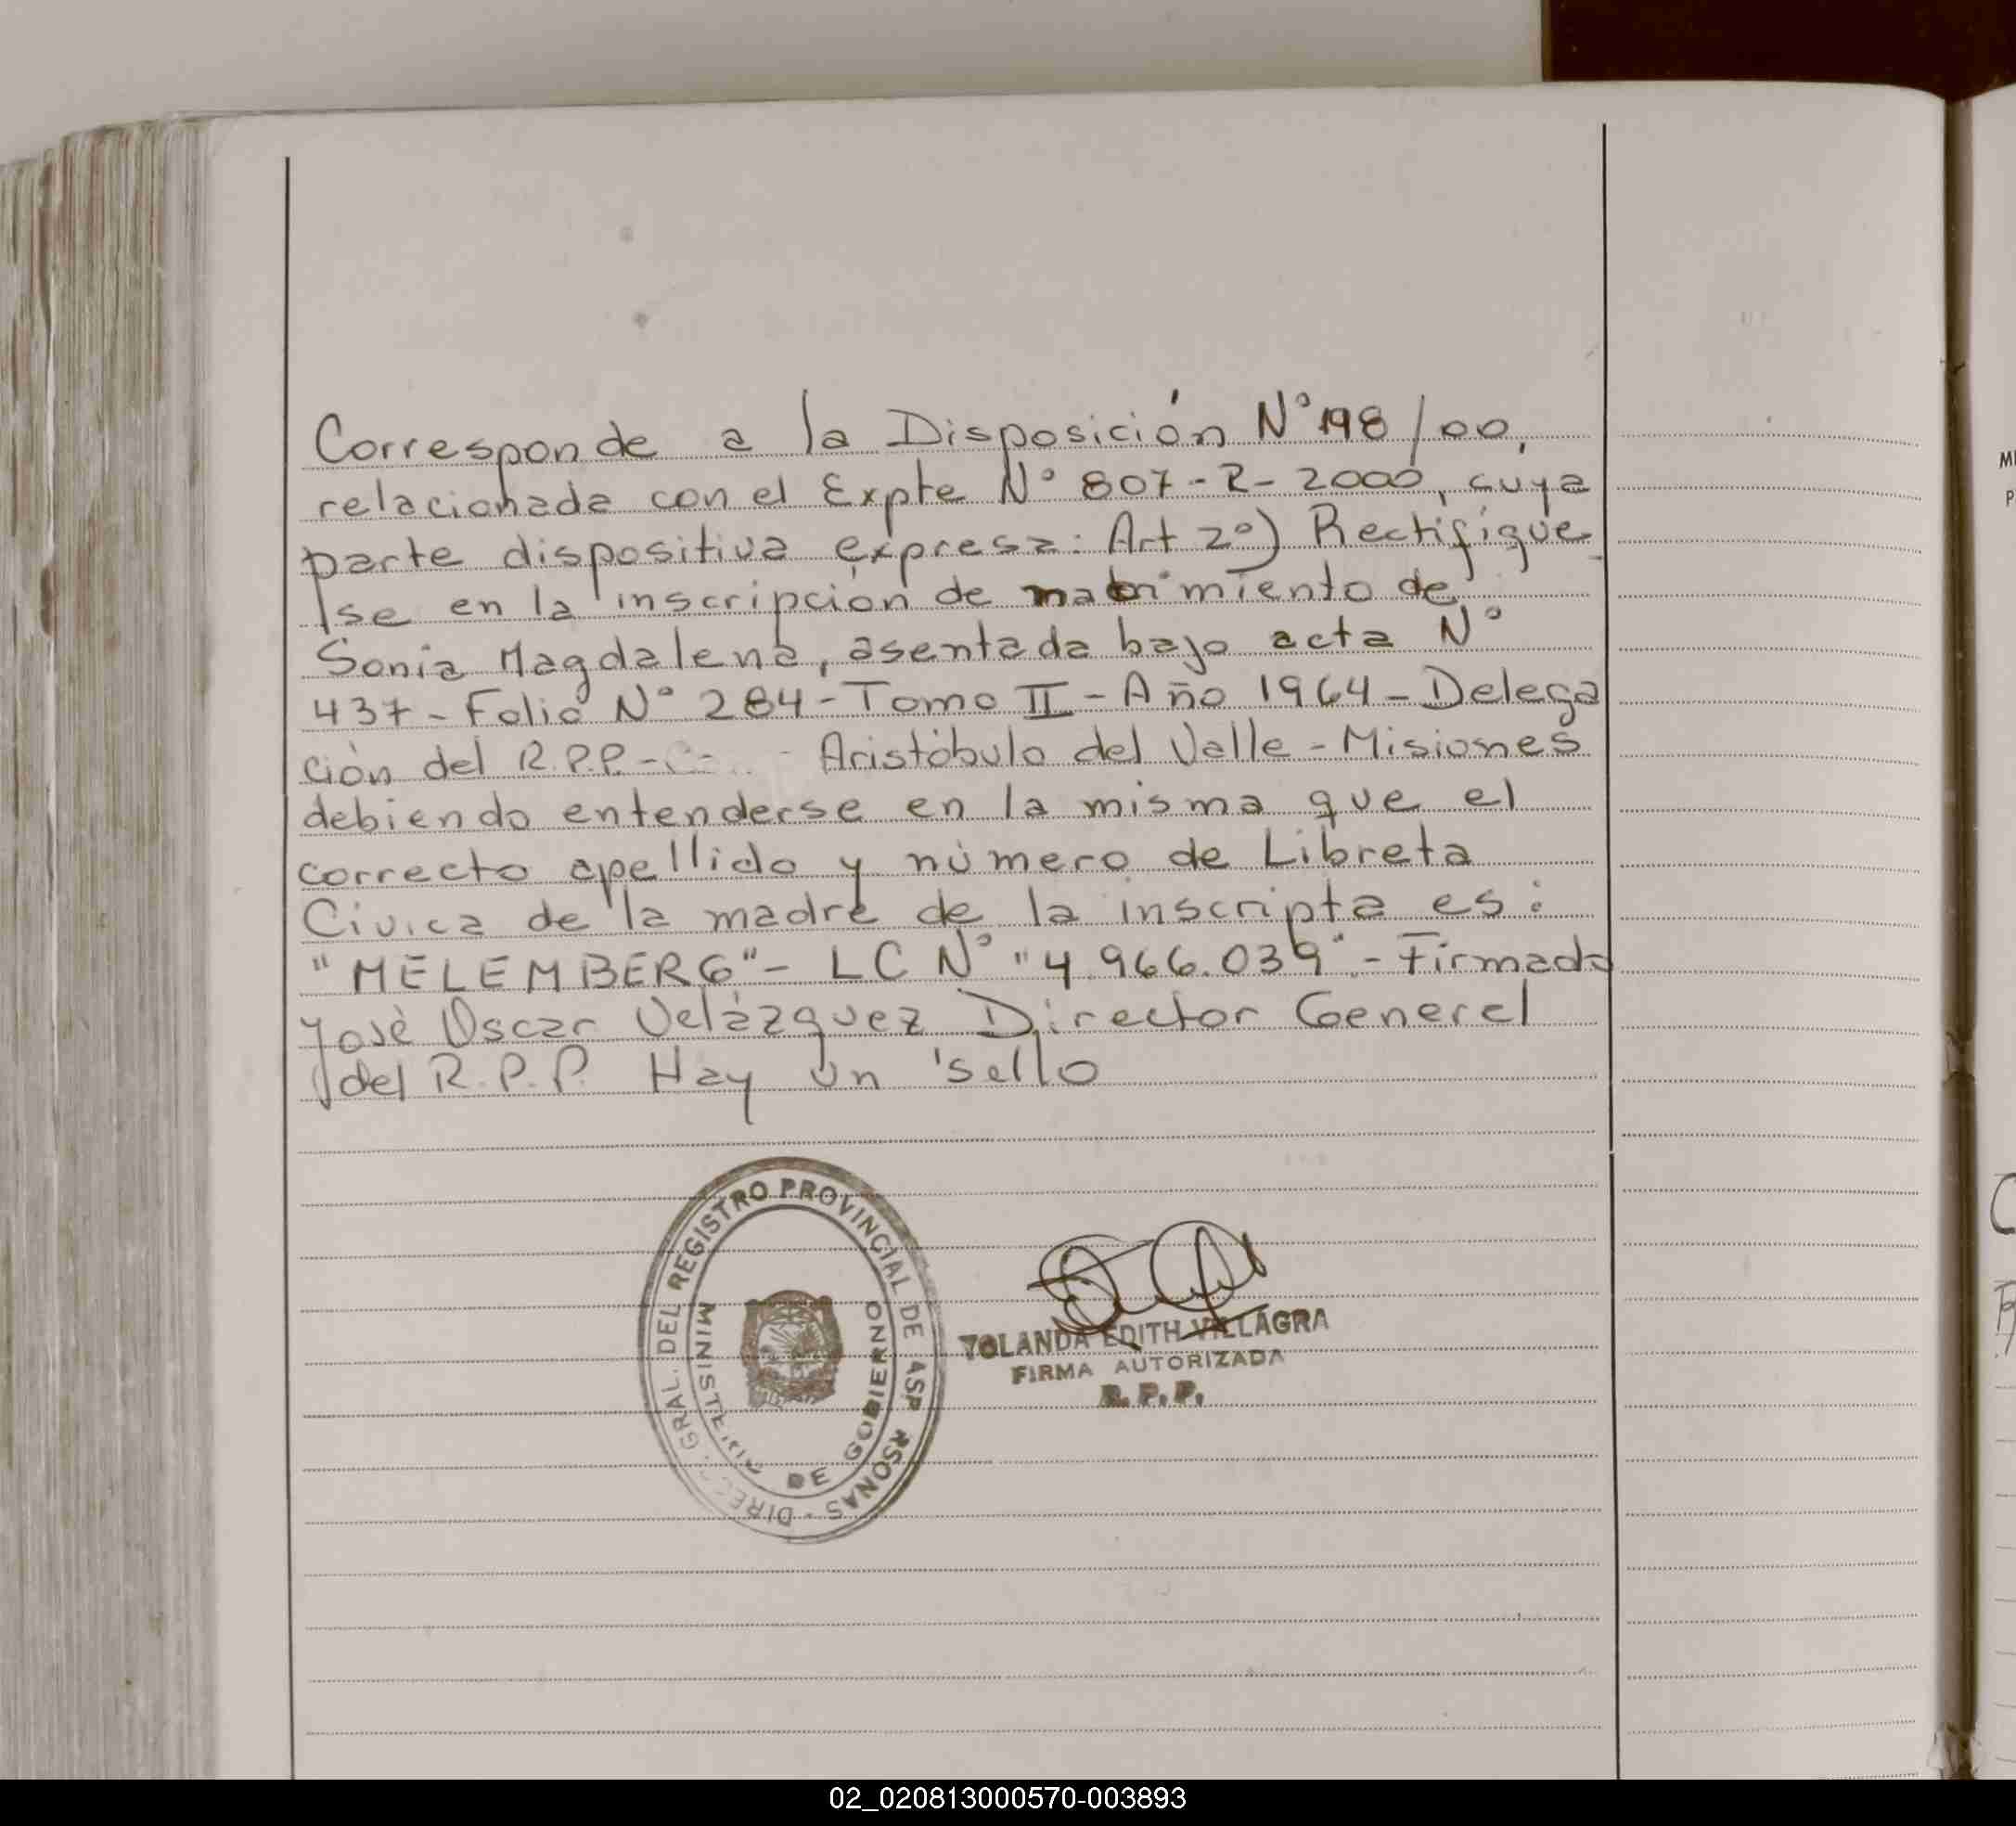 Corresponde a la Disposición N° 198/00,
relacionada con el Expte N° 807-R-2000, cuya
parte dispositiva expresa: Art 2°) Rectifíque
se en la inscripción de de
Sonia Magdalena, asentada bajo acta N°
437- Folio N° 284- Tomo II - Año 1964 - Delega
ción del R.P.P.- Aristóbulo del Valle - Misiones
debiendo entenderse en la misma que el
correcto apellido y número de Libreta
Cívica de la madre de la inscripta es:
"MELEMBERG"- LC N° "4.966.039".- Firmado
José Oscar Velázquez Director General
del R.P.P. Hay un sello
DIREC. GRAL. DEL REGISTRO PROVINCIAL DE RSONAS
MINISTERIO DE GOBIERNO
YOLANDA EDITH VILLAGRA
FIRMA AUTORIZADA
R. P. P.
02_020813000570-003893